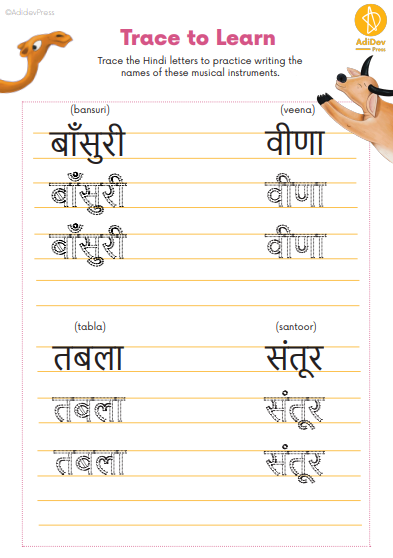 ©AdidevPress
AdiDev
Press
Trace to Learn
Trace the Hindi letters to practice writing the
names of these musical instruments.
(bansuri) (veena)
बाँसुरी वीणा
बाँसुरी वीणा
बाँसुरी वीणा
(tabla) (santoor)
तबला संतूर
तबला संतूर
तबला संतूर